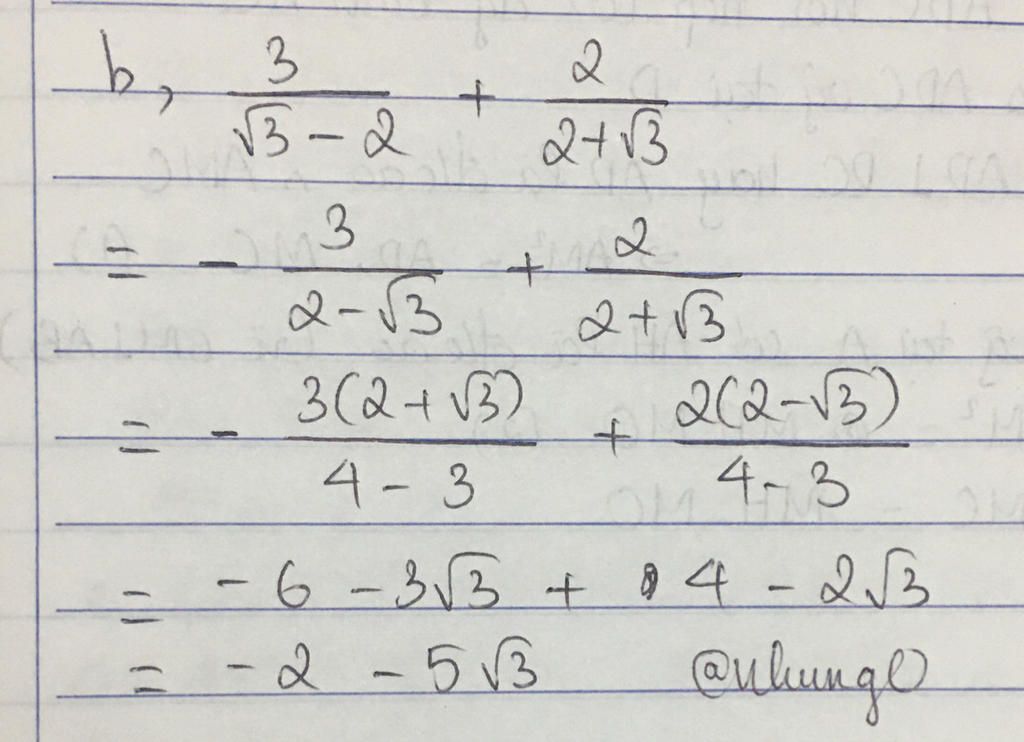 b, 3/(√3 - 2) + 2/(2+√3)
= - 3/(2-√3) + 2/(2+√3)
= - 3(2+√3)/(4-3) + 2(2-√3)/(4-3)
= -6 -3√3 + 4 - 2√3
= -2 -5√3 @nhung